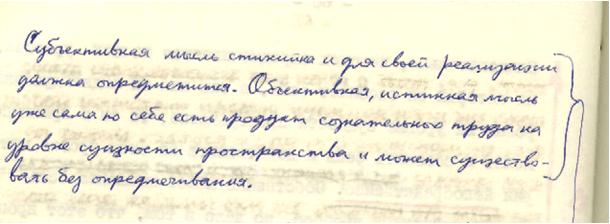 Субъективная мысль стихийна и для своей реализации
должна опредметится. Объективная, истинная мысль
уже сама по себе есть продукт сознательного труда на
уровне сущности пространства и может существо-
вать без опредмечивания.